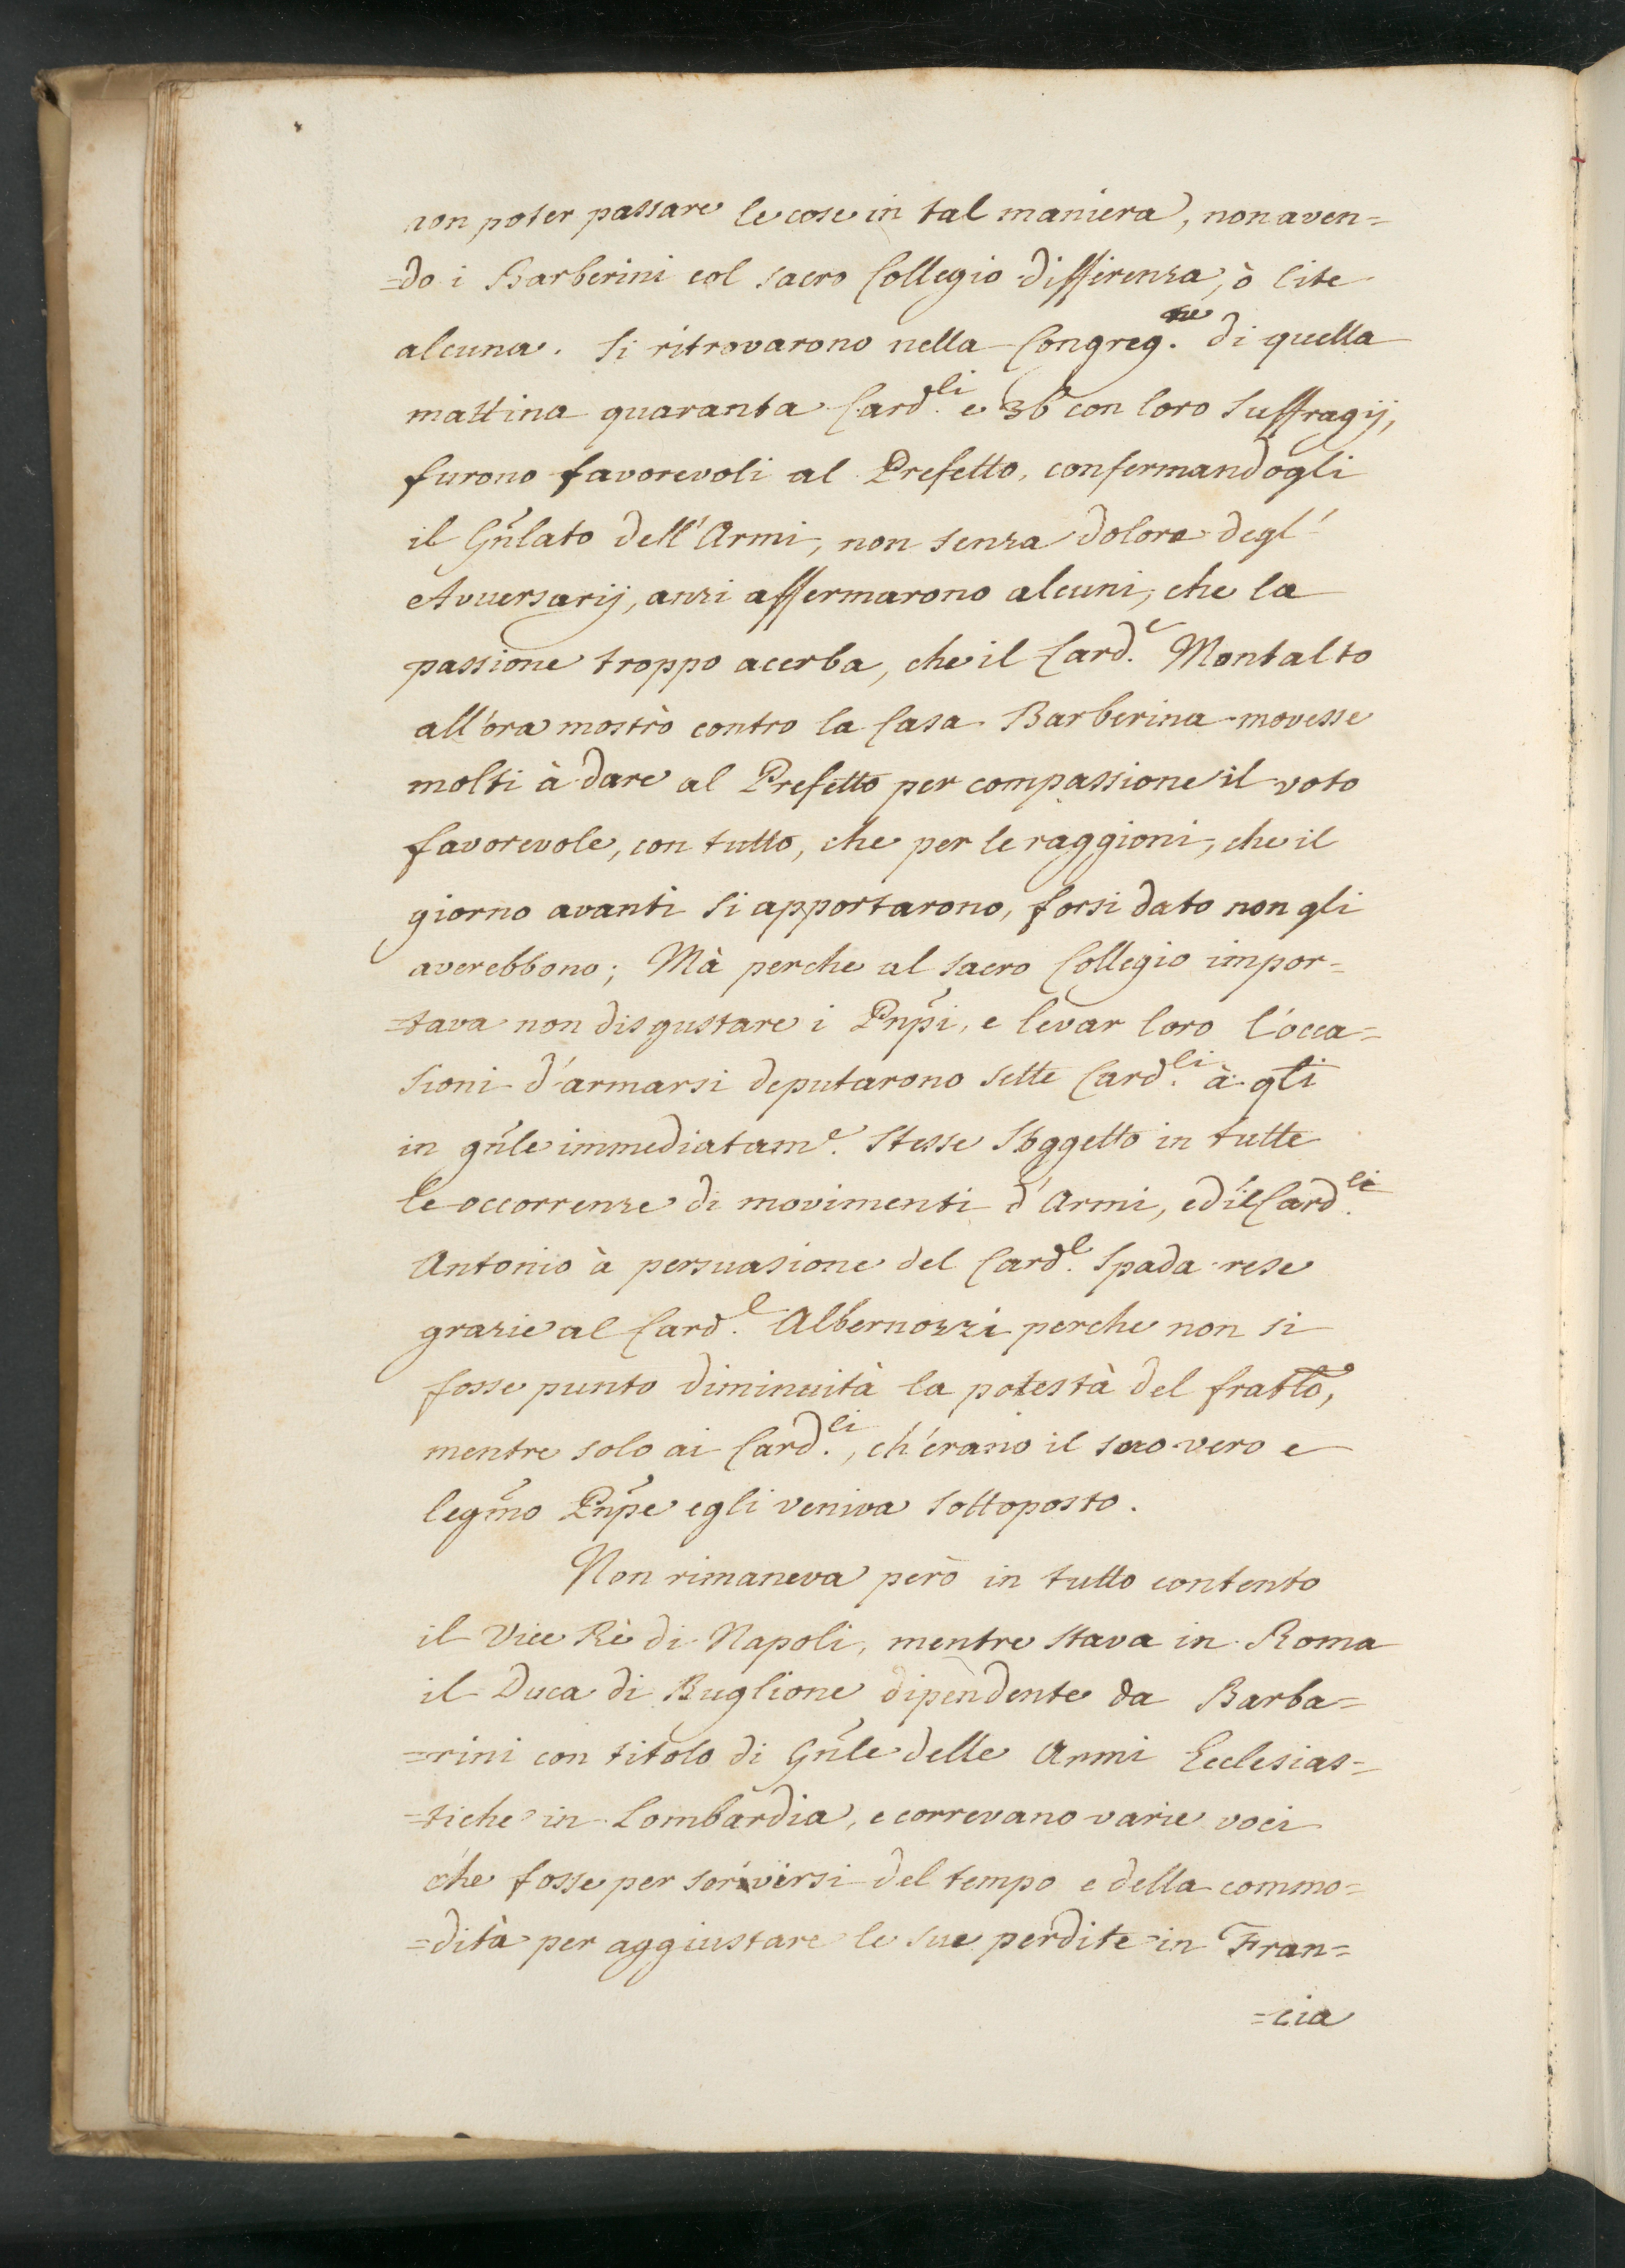 non poter passare le cose in tal maniera, non aven=
=do i Barberini col sacro Collegio differenza, ò lite
alcuna. Si ritrovarono nella Congreg.ne di quella
mattina quaranta Card.li e 36 con loro suffragij,
furono favorevoli al Prefetto, confermandogli
il Gñlato dell'Armi, non senza dolore degl'
Avversarij, anzi affermarono alcuni, che la
passione troppo acerba, che il Card.e Montalto
all'ora mostrò contro la Casa Barberina movesse
molti à dare al Prefetto per compassione il voto
favorevole, con tutto, che per le raggioni, che il
giorno avanti si apportarono, forsi dato non gli
averebbono; Mà perche al sacro Collegio impor=
=tava non disgustare i Pñpi, e levar loro l'occa=
sioni d'armarsi deputarono sette Card.li à qli
in gñle immediatam.e stesse soggetto in tutte
le occorrenze di movimenti d'Armi, ed il Card.le
Antonio à persuasione del Card.l Spada rese
grazie al Card.l Albernozzi perche non si
fosse punto diminuità la potestà del fratlo,
mentre solo ai Card.li, ch'erano il suo vero e
legm̃o Pñpe egli veniva sottoposto.
Non rimaneva però in tutto contento
il Vice Rè di Napoli, mentre stava in Roma
il Duca di Buglione dipendente da Barba=
=rini con titolo di Gñle delle Armi Ecclesias=
=tiche in Lombardia, e correvano varie voci
che fosse per servirsi del tempo e della commo=
=dità per aggiustare le sue perdite in Fran=
=cia